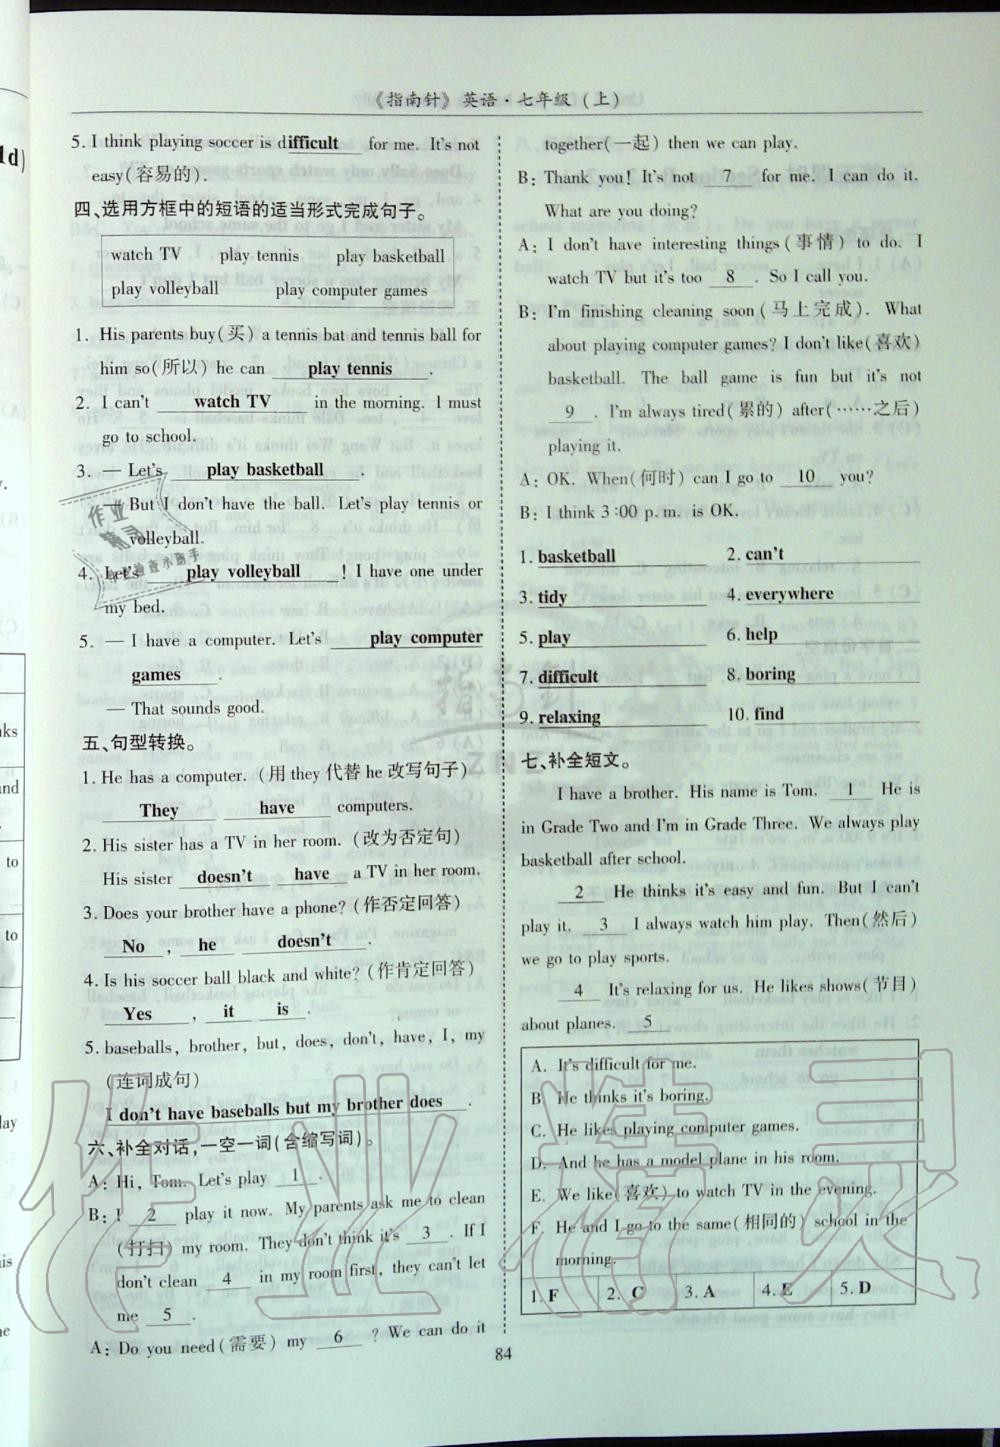 《指南针》英语·七年级(上)
5. I think playing soccer is difficult for me. It's not
easy(容易的).
四、选用方框中的短语的适当形式完成句子。
watch TV play tennis play basketball
play volleyball play computer games
1. His parents buy(买) a tennis bat and tennis ball for
him so(所以) he can play tennis .
2. I can't watch TV in the morning. I must
go to school.
3. — Let's play basketball .
— But I don't have the ball. Let's play tennis or
volleyball.
4. Let's play volleyball ! I have one under
my bed.
5. — I have a computer. Let's play computer
games .
— That sounds good.
五、句型转换。
1. He has a computer. (用 they 代替 he 改写句子)
They have computers.
2. His sister has a TV in her room. (改为否定句)
His sister doesn't have a TV in her room.
3. Does your brother have a phone? (作否定回答)
No , he doesn't .
4. Is his soccer ball black and white? (作肯定回答)
Yes , it is .
5. baseballs, brother, but, does, don't, have, I, my
(连词成句)
I don't have baseballs but my brother does .
六、补全对话,一空一词(含缩写词)。
A: Hi, Tom. Let's play 1 .
B: I 2 play it now. My parents ask me to clean
(打扫) my room. They don't think it's 3 . If I
don't clean 4 in my room first, they can't let
me 5 .
A: Do you need(需要) my 6 ? We can do it
together(一起) then we can play.
B: Thank you! It's not 7 for me. I can do it.
What are you doing?
A: I don't have interesting things(事情) to do. I
watch TV but it's too 8 . So I call you.
B: I'm finishing cleaning soon(马上完成). What
about playing computer games? I don't like(喜欢)
basketball. The ball game is fun but it's not
9 . I'm always tired(累的) after(……之后)
playing it.
A: OK. When(何时) can I go to 10 you?
B: I think 3:00 p. m. is OK.
1. basketball 2. can't
3. tidy 4. everywhere
5. play 6. help
7. difficult 8. boring
9. relaxing 10. find
七、补全短文。
I have a brother. His name is Tom. 1 He is
in Grade Two and I'm in Grade Three. We always play
basketball after school.
2 He thinks it's easy and fun. But I can't
play it. 3 I always watch him play. Then(然后)
we go to play sports.
4 It's relaxing for us. He likes shows(节目)
about planes. 5
A. It's difficult for me.
B. He thinks it's boring.
C. He likes playing computer games.
D. And he has a model plane in his room.
E. We like(喜欢) to watch TV in the evening.
F. He and I go to the same(相同的) school in the
morning.
1. F 2. C 3. A 4. E 5. D
84